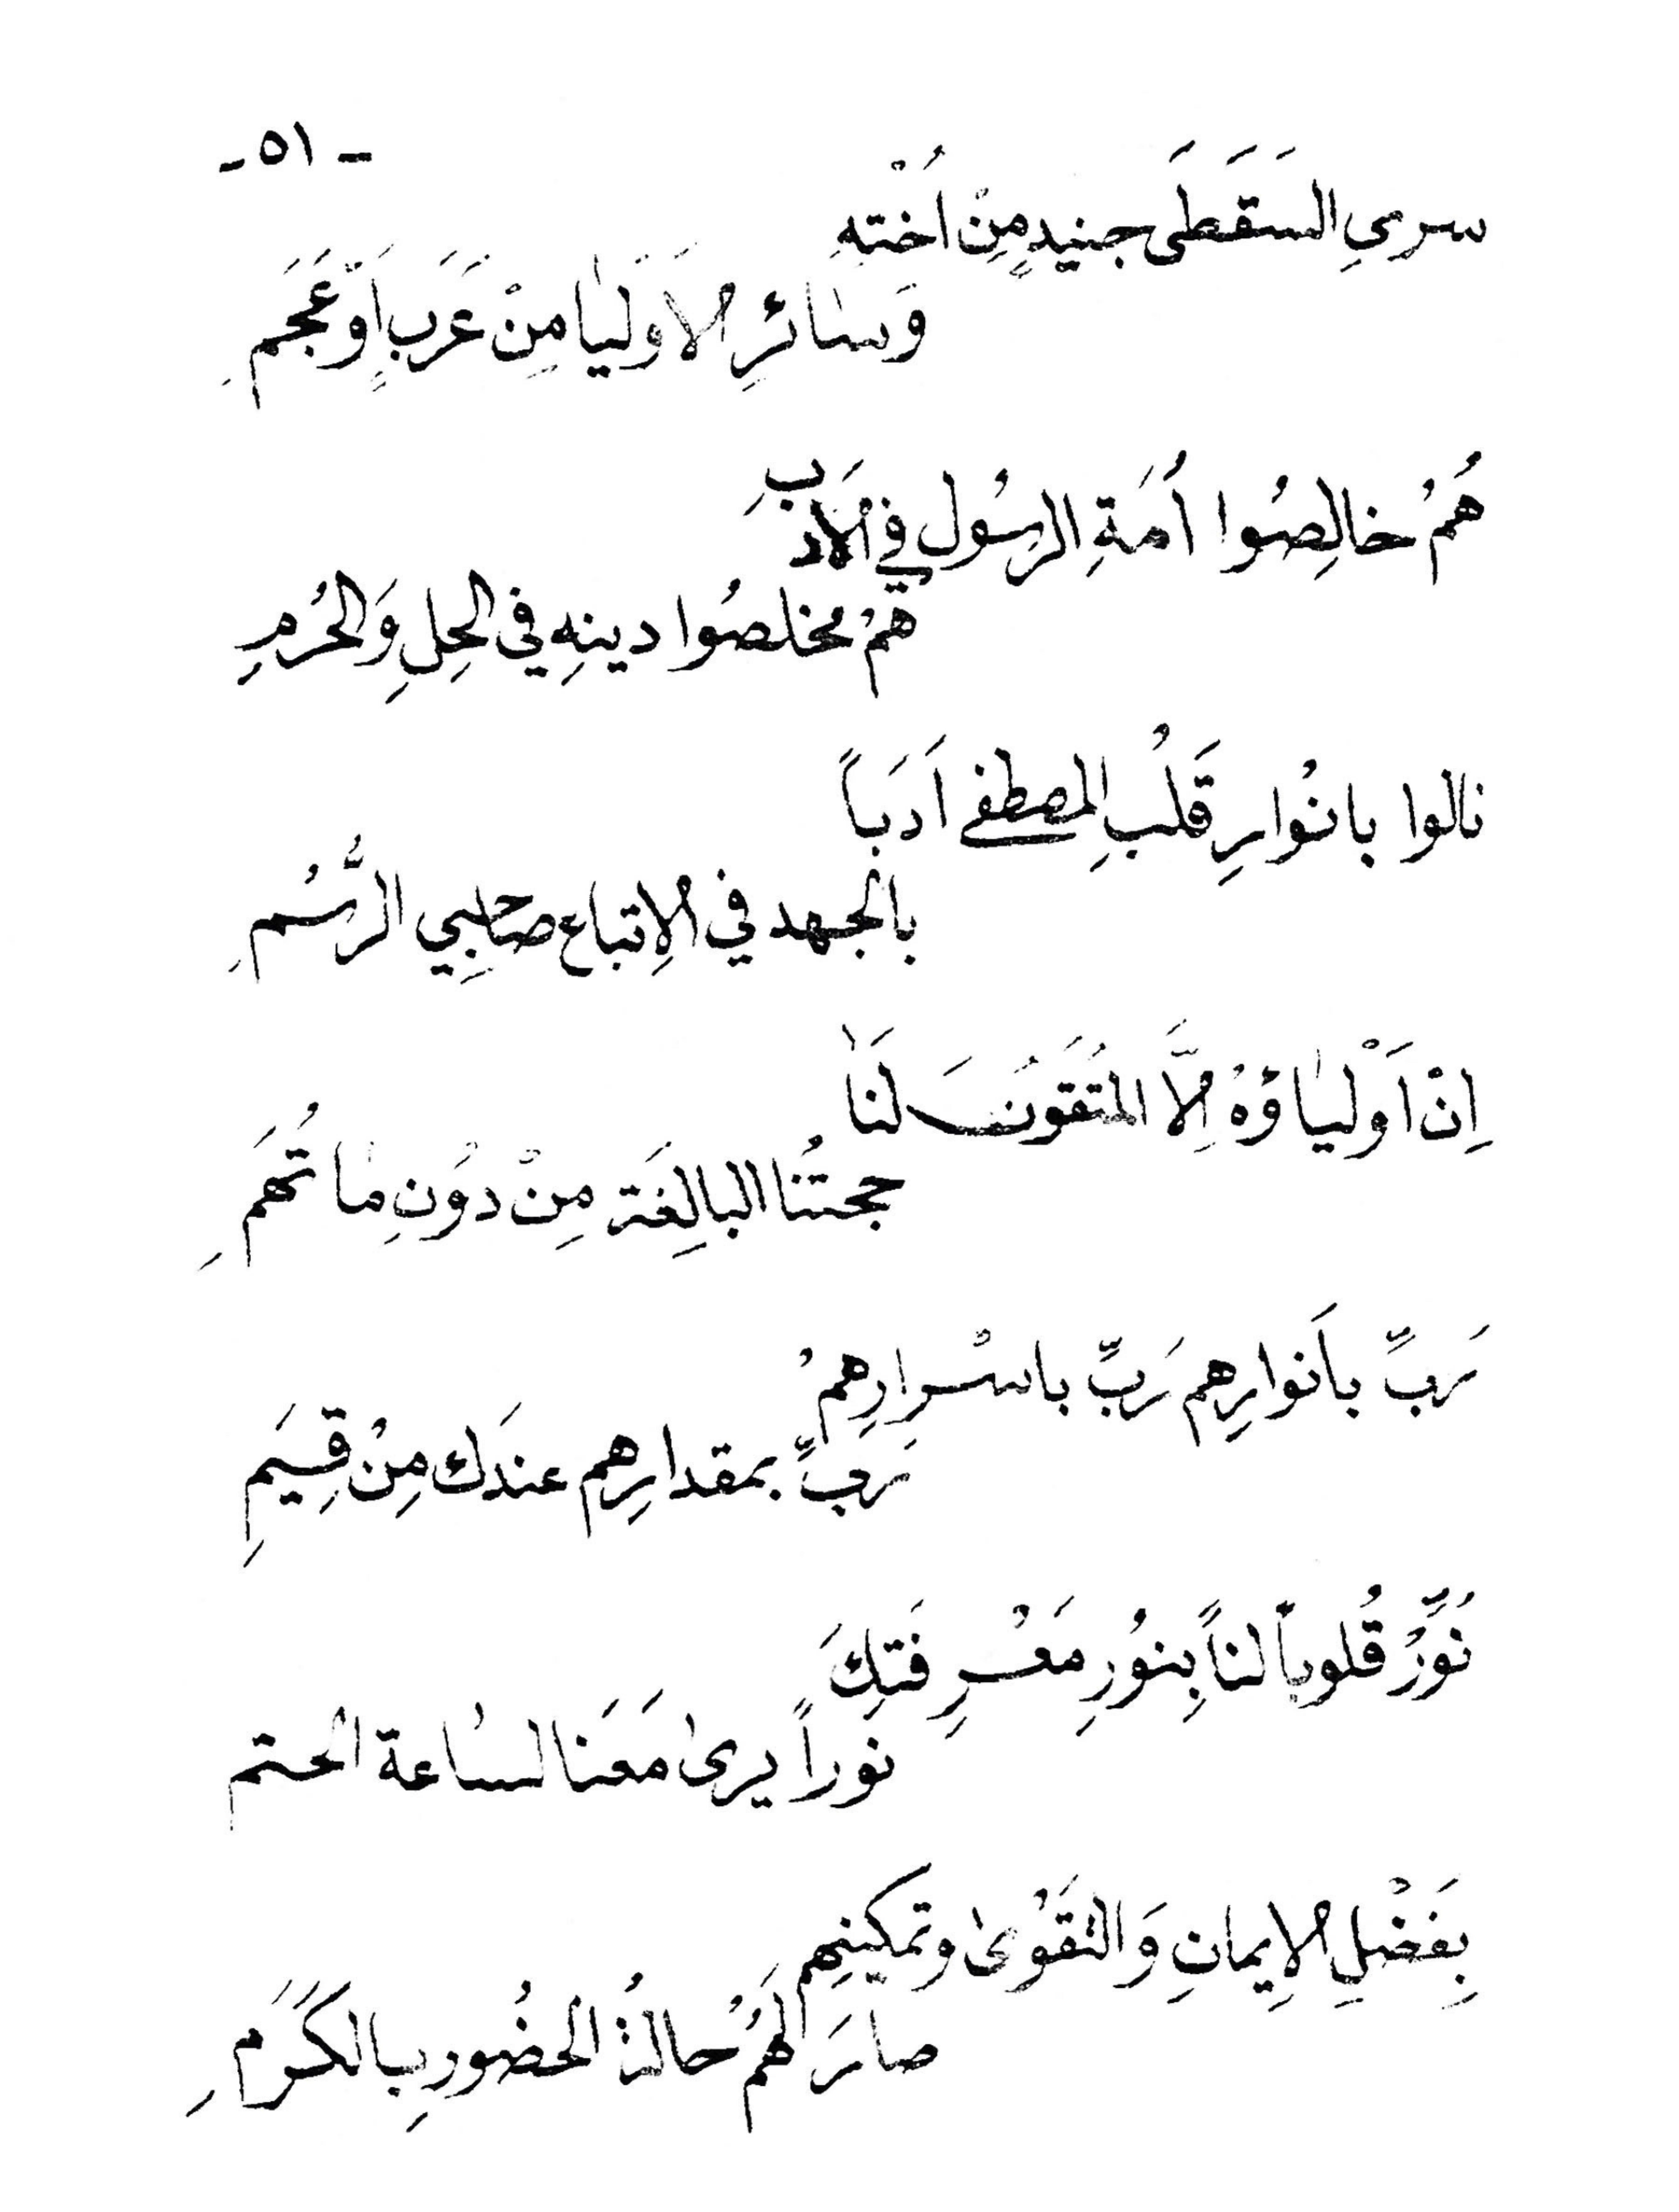 - ٥١ -
سرىِ السَقَطَى جنيدٍ مِنْ اُخْتِهِ
وَسٰائرِ الاَوَلَيٰا مِنْ عَرَبٍ اَوَعَجَمِ
هُمُ خالِصُوا اُمَةِ الرسُول في الاَدَبِ
همُ مخلصُوا دينهِ في الحِلِ وَالحُرُمِ
نالوا بانُوارِ قَلُبِ المصطفى اَدَبَاً
بالجهد في الاِتباع صَاحِبِي الرُّسُمِ
اِنْ اَوْليٰاؤهُ اِلاَّ المُتَقُونَ لَنَا
حجتُنا البالِغَة مِنْ دوُنِ مٰا تُهَمِ
رَبِّ باَنوارِهِم رَبِّ باسْرارِهِمُ
رَبِّ بمقدارِهِم عندَك مِنُ قِسَيمِ
نُوِّرُ قُلوباً لناً بِنوُرِ مَعْرِفَتِكَ
نوراً يرىٰ مَعَنا لسٰاعة الحتم
بِفَضْلِ الاِيمانِ وَالتَقَوْىٰ وتمكينِهِم
صارَ لَهُمُ حالةُ الحضُورِ بالكَرَمِ